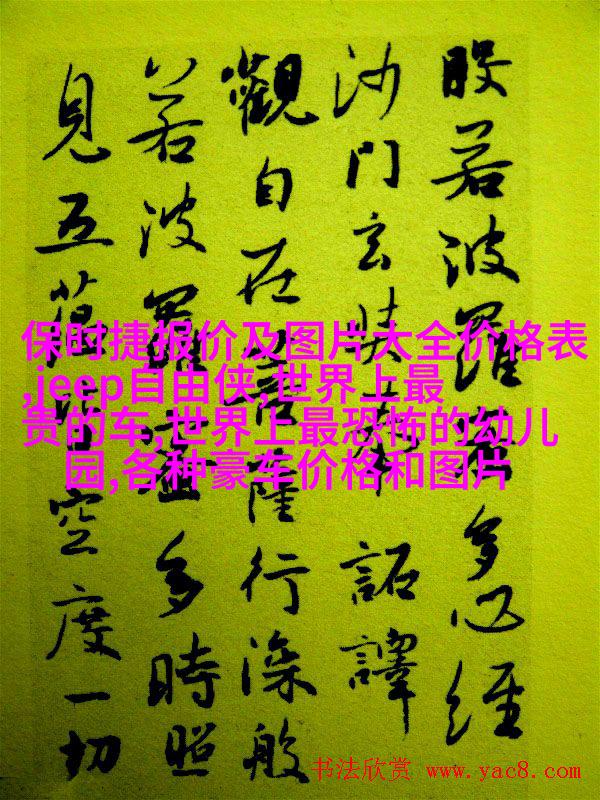 般若波羅蜜多心經
沙門玄奘奉 詔譯
觀自在菩薩行深般
若波羅蜜多時照
見五蘊皆空度一切
保时捷报价及图片大全价格表
,jeep自由侠,世界上最
贵的车,世界上最恐怖的幼儿
园,各种豪车价格和图片
书法欣赏 www.yac8.com